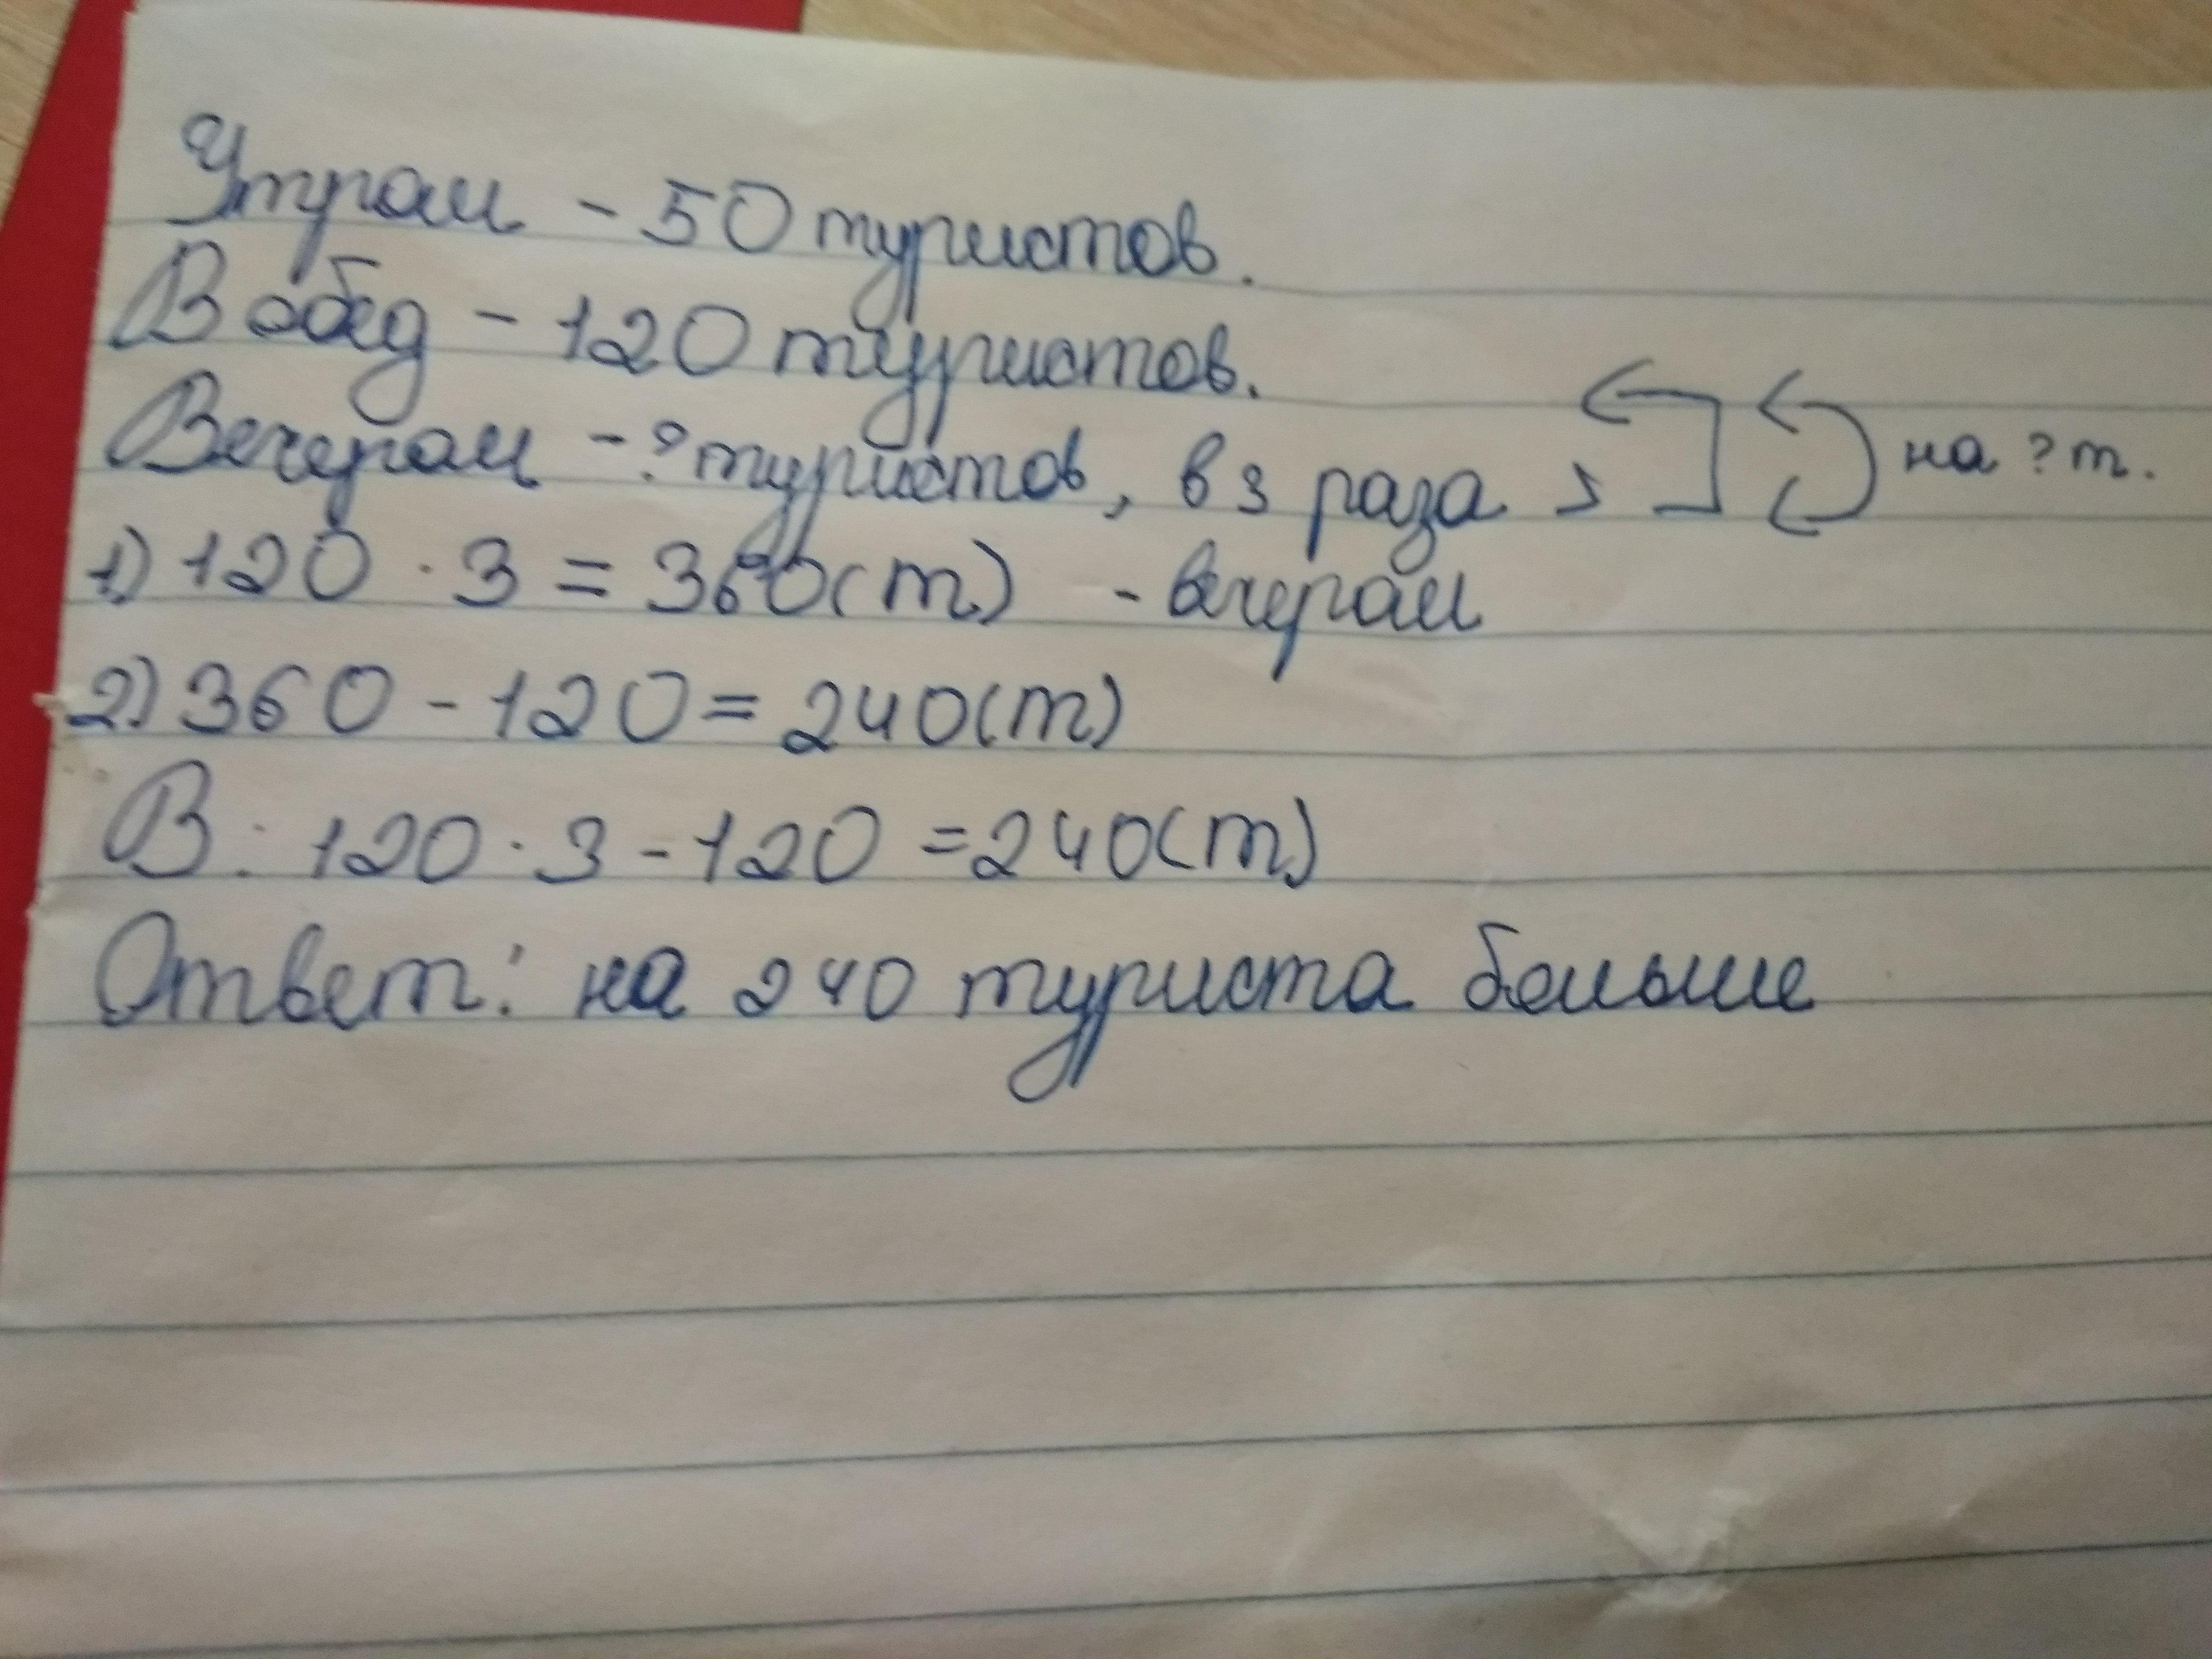 Утром - 50 туристов.
В обед - 120 туристов.
Вечером - ? туристов, в 3 раза > на ? т.
1) 120 · 3 = 360(т) - вечером
2) 360 - 120 = 240(т)
В: 120 · 3 - 120 = 240(т)
Ответ: на 240 туриста больше